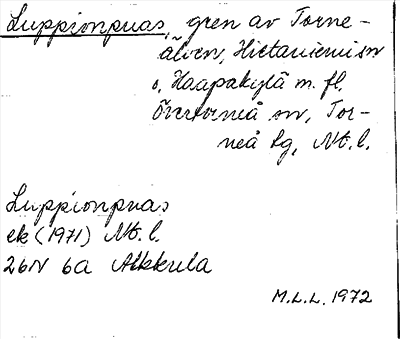 Luppionpuas, gren av Torne-
älven, Hietaniemi sn
o. Haapakylä m. fl.
Övertorneå sn, Tor-
neå tg, Nb. l.
Luppionpuas
ek (1971) Nb. l.
26N 6a Alkkula
M.L.L. 1972